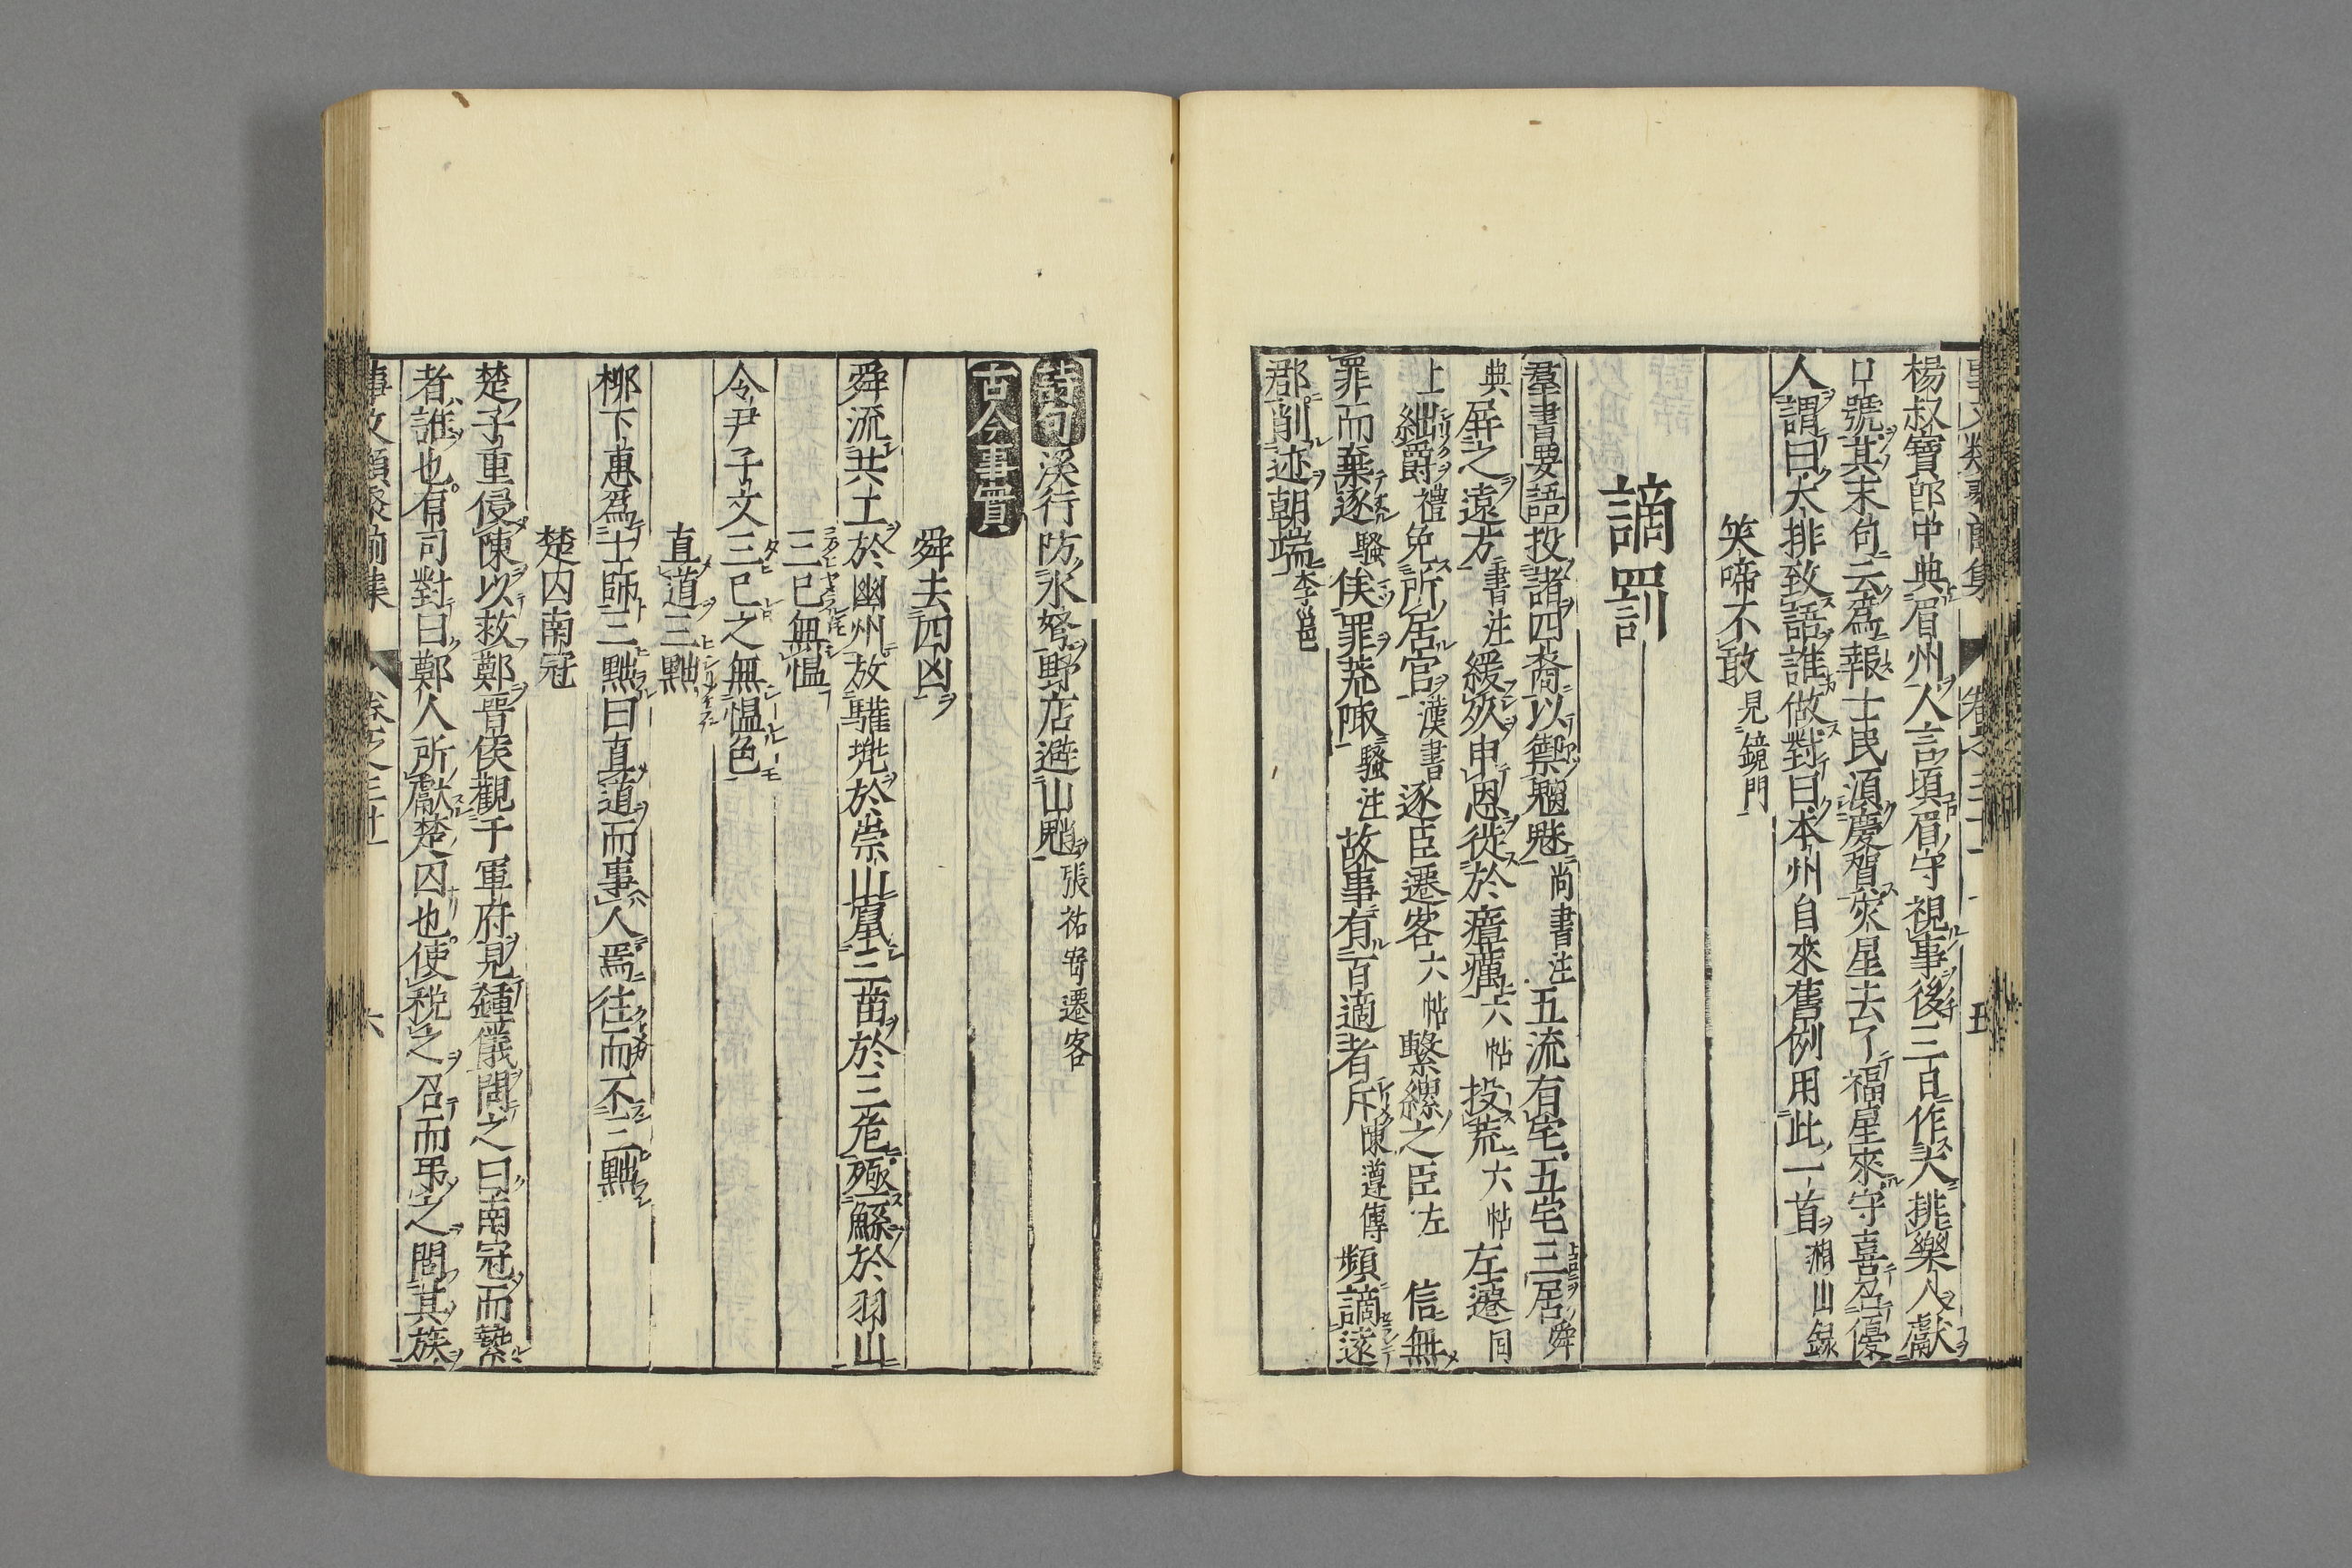 楊叔寶郎中典眉州人言頃眉守視事後三日作大排樂人獻
口號其末句云爲報士民須慶賀灾星去了福星來守喜召優
人謂曰大排致語誰做對曰本州自來舊例用此一首湘山録
笑啼不敢見鏡門
謫罰
羣書要語投諸四裔以禦魑魅尚書注五流有宅五宅三居舜
典屏之遠方書注緩死申恩徙於瘴癘六帖投荒六帖左遷同
上絀爵禮免所居官漢書逐臣遷客六帖繫縲之臣左信無
罪而棄逐騷俟罪荒陬騷注故事有百適者斥陳遵傳頻謫遠
郡削迹朝端李邕
詩句溪行防水弩野店避山魈張祐寄遷客
古今事實
舜去四凶
舜流共工於幽州放驩兠於崇山竄三苗於三危殛鯀於羽山
三已無慍
令尹子文三已之無慍色
直道三黜
柳下惠爲士師三黜曰直道而事人焉往而不三黜
楚囚南冠
楚子重侵陳以救鄭晋侯觀于軍府見鍾儀問之曰南冠而縶
者誰也有司對曰鄭人所獻楚囚也使税之召而弔之問其族
卷之三十一 六